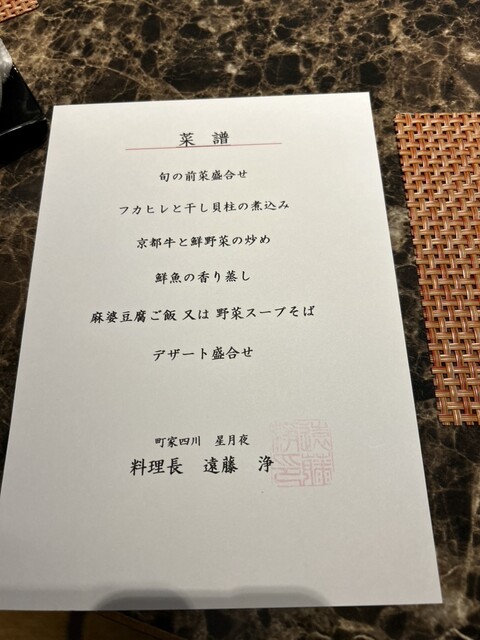 菜譜
旬の前菜盛合せ
フカヒレと干し貝柱の煮込み
京都牛と鮮野菜の炒め
鮮魚の香り蒸し
麻婆豆腐ご飯 又は 野菜スープそば
デザート盛合せ
町家四川 星月夜
料理長 遠藤 浄